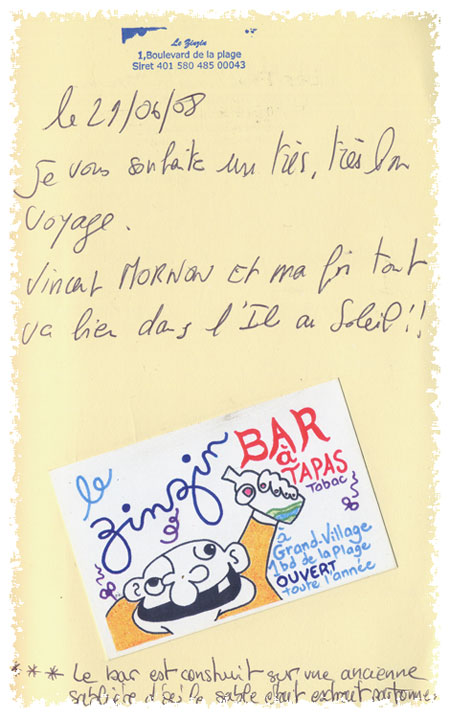 Le Zinzin
1,Boulevard de la plage
Siret 401 580 485 00043
le 21/06/08
Je vous souhaite un très, très bon
voyage.
Vincent MORNON Et ma foi tout
va bien dans l'Il au Soleil !!
le zinzin
BAR
à
TAPAS
Tabac
à
Grand-Village
1 bd de la Plage
OUVERT
toute l'année
*** Le bar est construit sur une ancienne
sablière